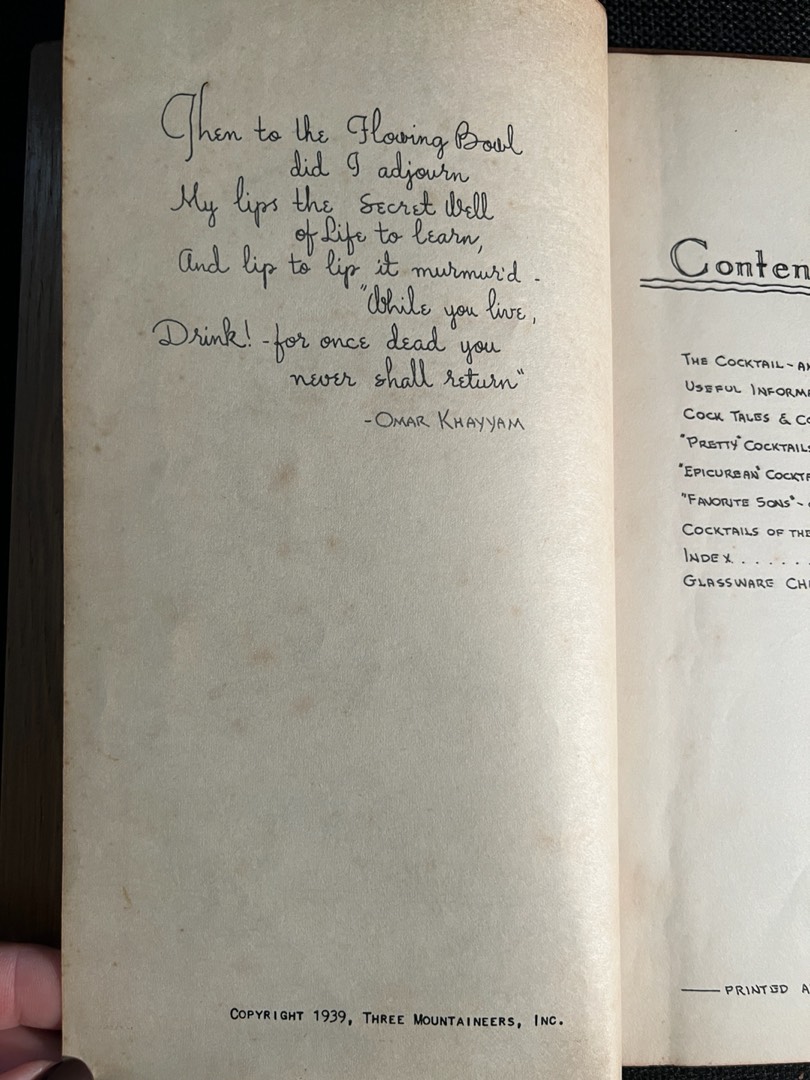 Then to the Flowing Bowl
did I adjourn
My lips the Secret Well
of Life to learn,
And lip to lip it murmur'd -
"While you live,
Drink! - for once dead you
never shall return"
- OMAR KHAYYAM
COPYRIGHT 1939, THREE MOUNTAINEERS, INC.
Conten
THE COCKTAIL - A
USEFUL INFORM
COCK TALES & C
"PRETTY" COCKTAIL
"EPICUREAN" COCKT
"FAVORITE SONS" -
COCKTAILS OF THE
INDEX . . . . . .
GLASSWARE CH
PRINTED A